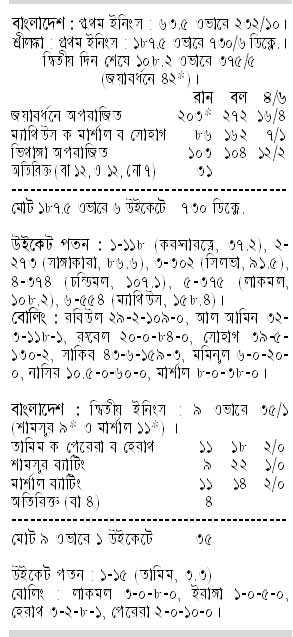 বাংলাদেশ : প্রথম ইনিংস : ৬৩.৫ ওভারে ২৩২/১০।
শ্রীলঙ্কা : প্রথম ইনিংস : ১৮৭.৫ ওভারে ৭৩০/৬ ডিক্লে.।
দ্বিতীয় দিন শেষে ১০৮.২ ওভারে ৩৭৫/৫
(জয়াবর্ধনে ৪২*)।
রান বল ৪/৬
জয়াবর্ধনে অপরাজিত ২০৩* ২৭২ ১৬/৪
ম্যাথিউস ক মার্শাল ব সোহাগ ৮৬ ১৬২ ৭/১
ভিথাঙ্গা অপরাজিত ১০৩ ১০৪ ১২/২
অতিরিক্ত (বা ১২, ও ১২, নো ৭) ৩১
মোট ১৮৭.৫ ওভারে ৬ উইকেটে ৭৩০ ডিক্লে.
উইকেট পতন : ১-১১৮ (করুনারত্নে, ৩৭.২), ২-
২৭৩ (সাঙ্গাকারা, ৮৬.৬), ৩-৩০২ (সিলভা, ৯১.৫),
৪-৩৭৪ (চন্ডিমল, ১০৭.১), ৫-৩৭৫ (লাকমল,
১০৮.২), ৬-৫৫৪ (ম্যাথিউস, ১৫৮.৪)।
বোলিং : রবিউল ২৯-২-১০৯-০, আল আমিন ৩২-
৩-১১৮-১, রুবেল ২০-০-৮৪-০, সোহাগ ৩৯-৫-
১৩০-২, সাকিব ৪৩-৬-১৫৯-৩, মমিনুল ৬-০-২০-
০, নাসির ১০.৫-০-৬০-০, মার্শাল ৮-০-৩৮-০।
বাংলাদেশ : দ্বিতীয় ইনিংস : ৯ ওভারে ৩৫/১
(শামসুর ৯* ও মার্শাল ১১*) ।
তামিম ক পেরেরা ব হেরাথ ১১ ১৮ ২/০
শামসুর ব্যাটিং ৯ ২২ ১/০
মার্শাল ব্যাটিং ১১ ১৪ ২/০
অতিরিক্ত (বা ৪) ৪
মোট ৯ ওভারে ১ উইকেটে ৩৫
উইকেট পতন : ১-১৫ (তামিম, ৩.৩)
বোলিং : লাকমল ৩-০-৮-০, ইরাঙ্গা ১-০-৫-০,
হেরাথ ৩-২-৮-১, পেরেরা ২-০-১০-০।